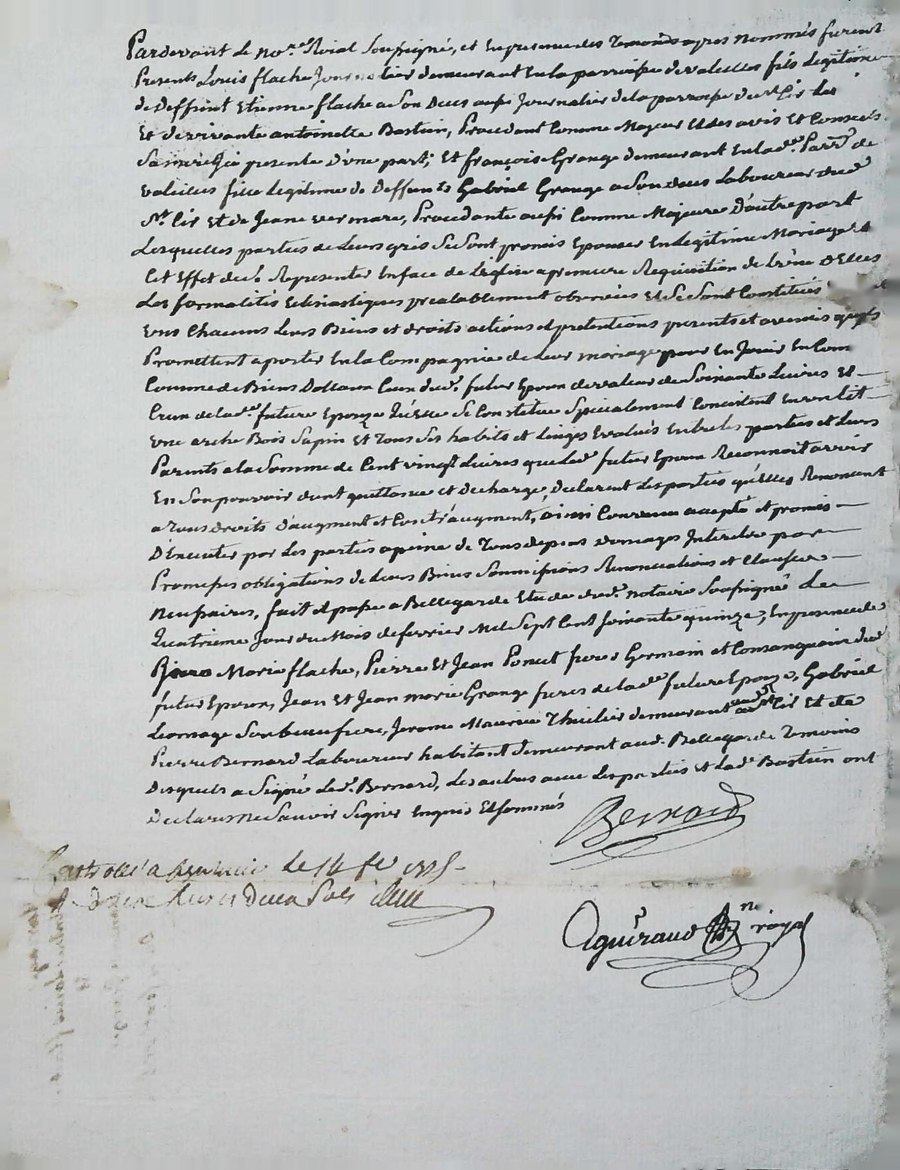 Pardevant le nore. Roial Soussigné, et En presence des Temoins apres nommés furent
Presents Louis flache Journalier demeurant En la parroisse de valeilles fils Legitime
de deffunt Etienne flache a son deces aussi Journalier de la parroisse du d. St. Cir Les
Et de vivante antoinette Bastien, Procedant Comme Majeur Et des avis Et Conseils
Sa mere Icy presente d'Une part; Et françoise Grange demeurant En lad. Parr. de
valeilles fille Legitime de Deffunts Gabriel Grange a son deces Laboureur du d.
St. Cir Et de Jeane vermare, Procedante aussi Comme Majeure D'autre part
Lesquelles parties de Leurs gris Se Sont promis Epouser En Legitime Mariage &
Cet Effet de s. Representer En face de L'eglise a premiere Requisition de L'une D'Elles
Les formalités Eclesiastiques prealablement observées Et Se Sont Constitués
Uns Chacuns Leurs Biens et droits actions et pretentions presents et avenir quils
Promettent aporter En la Compagnie de Leur mariage pour En Jouir En Com
Comme de Biens Dottaux Ceux du d. futur Epoux de valeur de Soixante Livres Et
Ceux de la de. future Epouze qu'elle Se Constitue Specialement Concistent En un Lit
Une arche Bois Sapin Et Tous Ses habits et Linges Evalués Entre les parties et Leurs
Parents a la Somme de Cent vingt Livres que Led. futur Epoux Reconnoit avoir
En Son pouvoir dont quittance et decharge, Declarent Les parties qu'Elles Renoncent
a Tous droits d'augment et Contr'augment, ainsi Convenu accepté et promis
D'Executer par Les parties a peine de Tous depens domages Interets par
Promesses obligations de Leurs Biens Soumissions Renonciations et Clauses
Necessaires, fait et passé a Bellegarde Etude du d. notaire Soussigné Le
Quatrieme Jour du Mois de fevrier Mil Sept Cent soixante quinze, En presence de
Marie flache, Pierre Et Jean Poncet freres Germain et Consanguain du d.
futur Epoux, Jean Et Jean marie Grange freres de lad. future Epouze, Gabriel
Leomage Son beaufrere, Jerome Maurice Thuilier demeurant aud. St. Cir Et de
Pierre Bernard Laboureur habitant demeurant aud. Bellegarde Temoins
Desquels a Signé Led. Bernard, Les autres avec Les parties et Lad. Bastien ont
Declaré Ne Savoir Signer Enquis Et Sommés
Bernard
le 14 fe 1775
Livres Deux Sols
Aguiraud ne royal